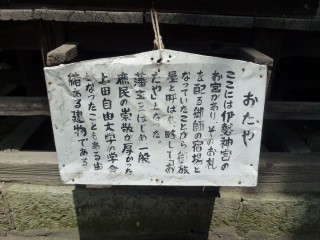 おたや
ここには伊勢神宮の
お宮があり、そのお札
を配る御師の宿場と
なっていたことから御旅
屋と呼ばれ、略してお
たやとなった。
藩主をはじめ一般
庶民の崇敬が厚かった
上田自由大学の学舎
となったこともある由
緒ある建物である